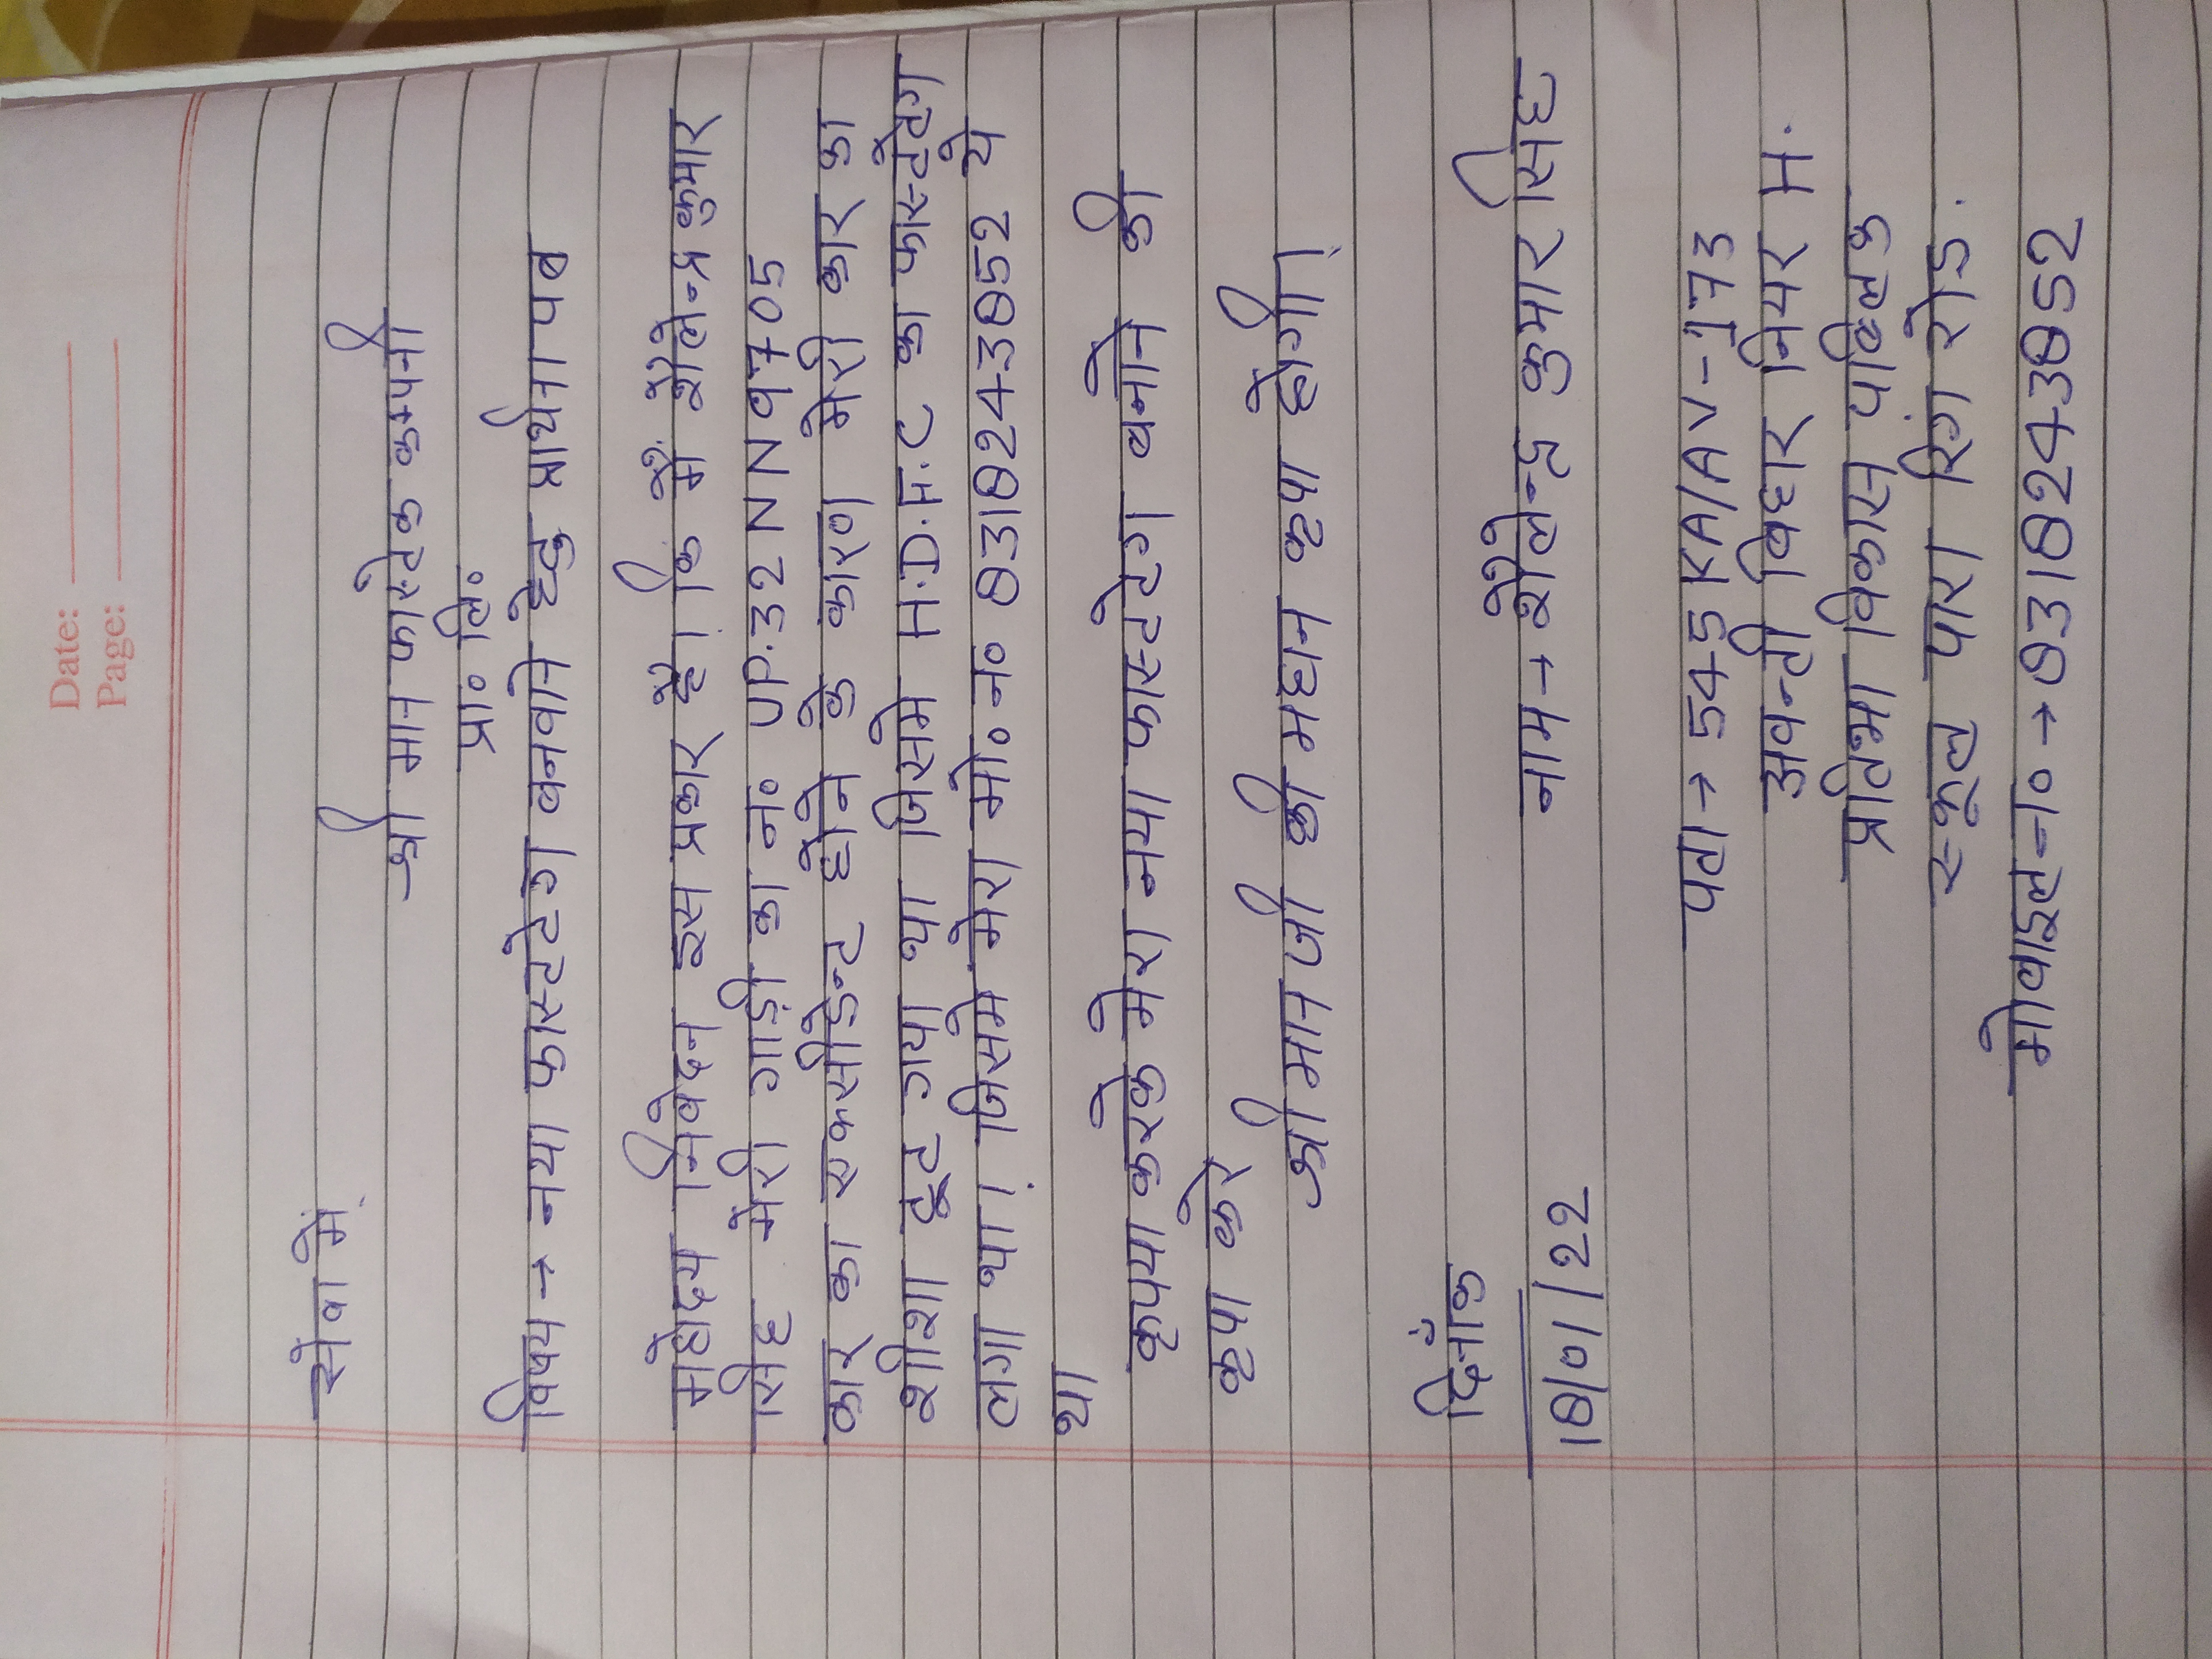 Date:
Page:
सेवा मे
श्री मान फास्टेक कम्पनी
प्रा॰ लि॰
विषय → नया फास्टटेग बनवाने हेतु प्रार्थना पत्र
महोदय निवेदन इस प्रकार है। कि मैं शैलेन्द्र कुमार
सिंह मेरी गाड़ी का नं॰ UP.32 NN 9705
कार का एक्सीडेन्ट होने के कारण मेरी कार का
शीशा टूट गया था जिसमे H.D.F.C का फास्टटेग
लगा था। जिसमे मेरा मो॰ न॰ 8318243852 ये
था
कृपया करके मेरा नया फास्टटेग बनाने की
कृपा करे
श्री मान जी की महान कृपा होगी।
दिनाँक
18/01/22
नाम → शैलेन्द्र कुमार सिंह
पता → 545 KA/AV-173
अवन्ती विहार नियर H.
प्रतिभा विकास पब्लिक
स्कूल पारा रिंग रोड.
मोबाइल न० → 8318243852